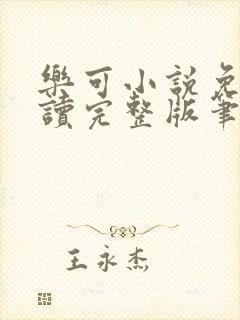 樂可小說免
讀完整版筆
王永杰